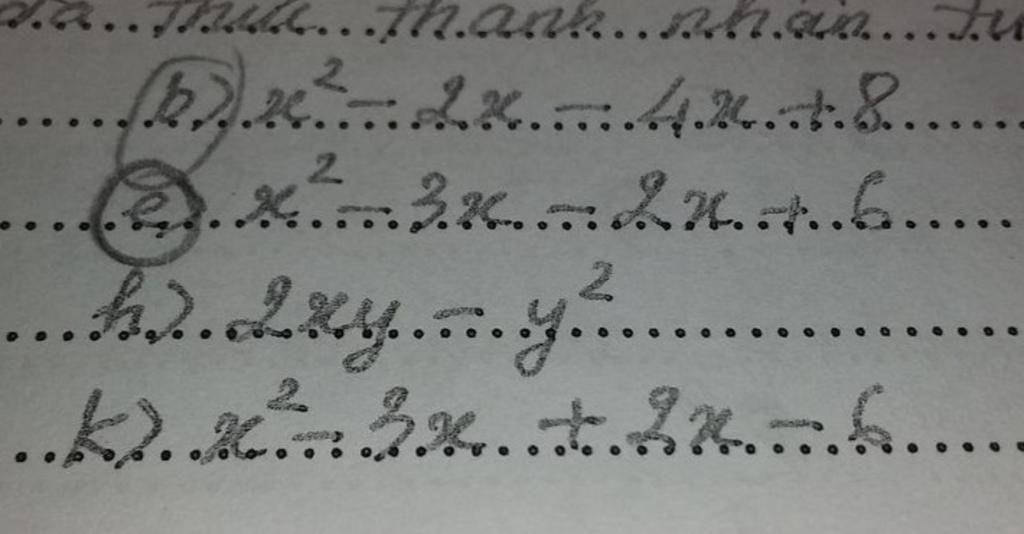 thức thành nhân tử
b) x² - 2x - 4x + 8
e) x² - 3x - 2x + 6
h) 2xy - y²
k) x² - 3x + 2x - 6